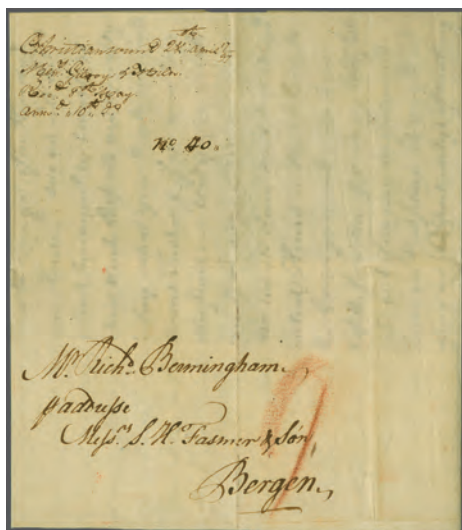 Christiansound 24th April
Recd. 8th May
Answd. 10th Do
No. 40.
Mr. Richd. Bermingham.
p addresse
Messrs. S. H. Fasmer & Søn,
Bergen.